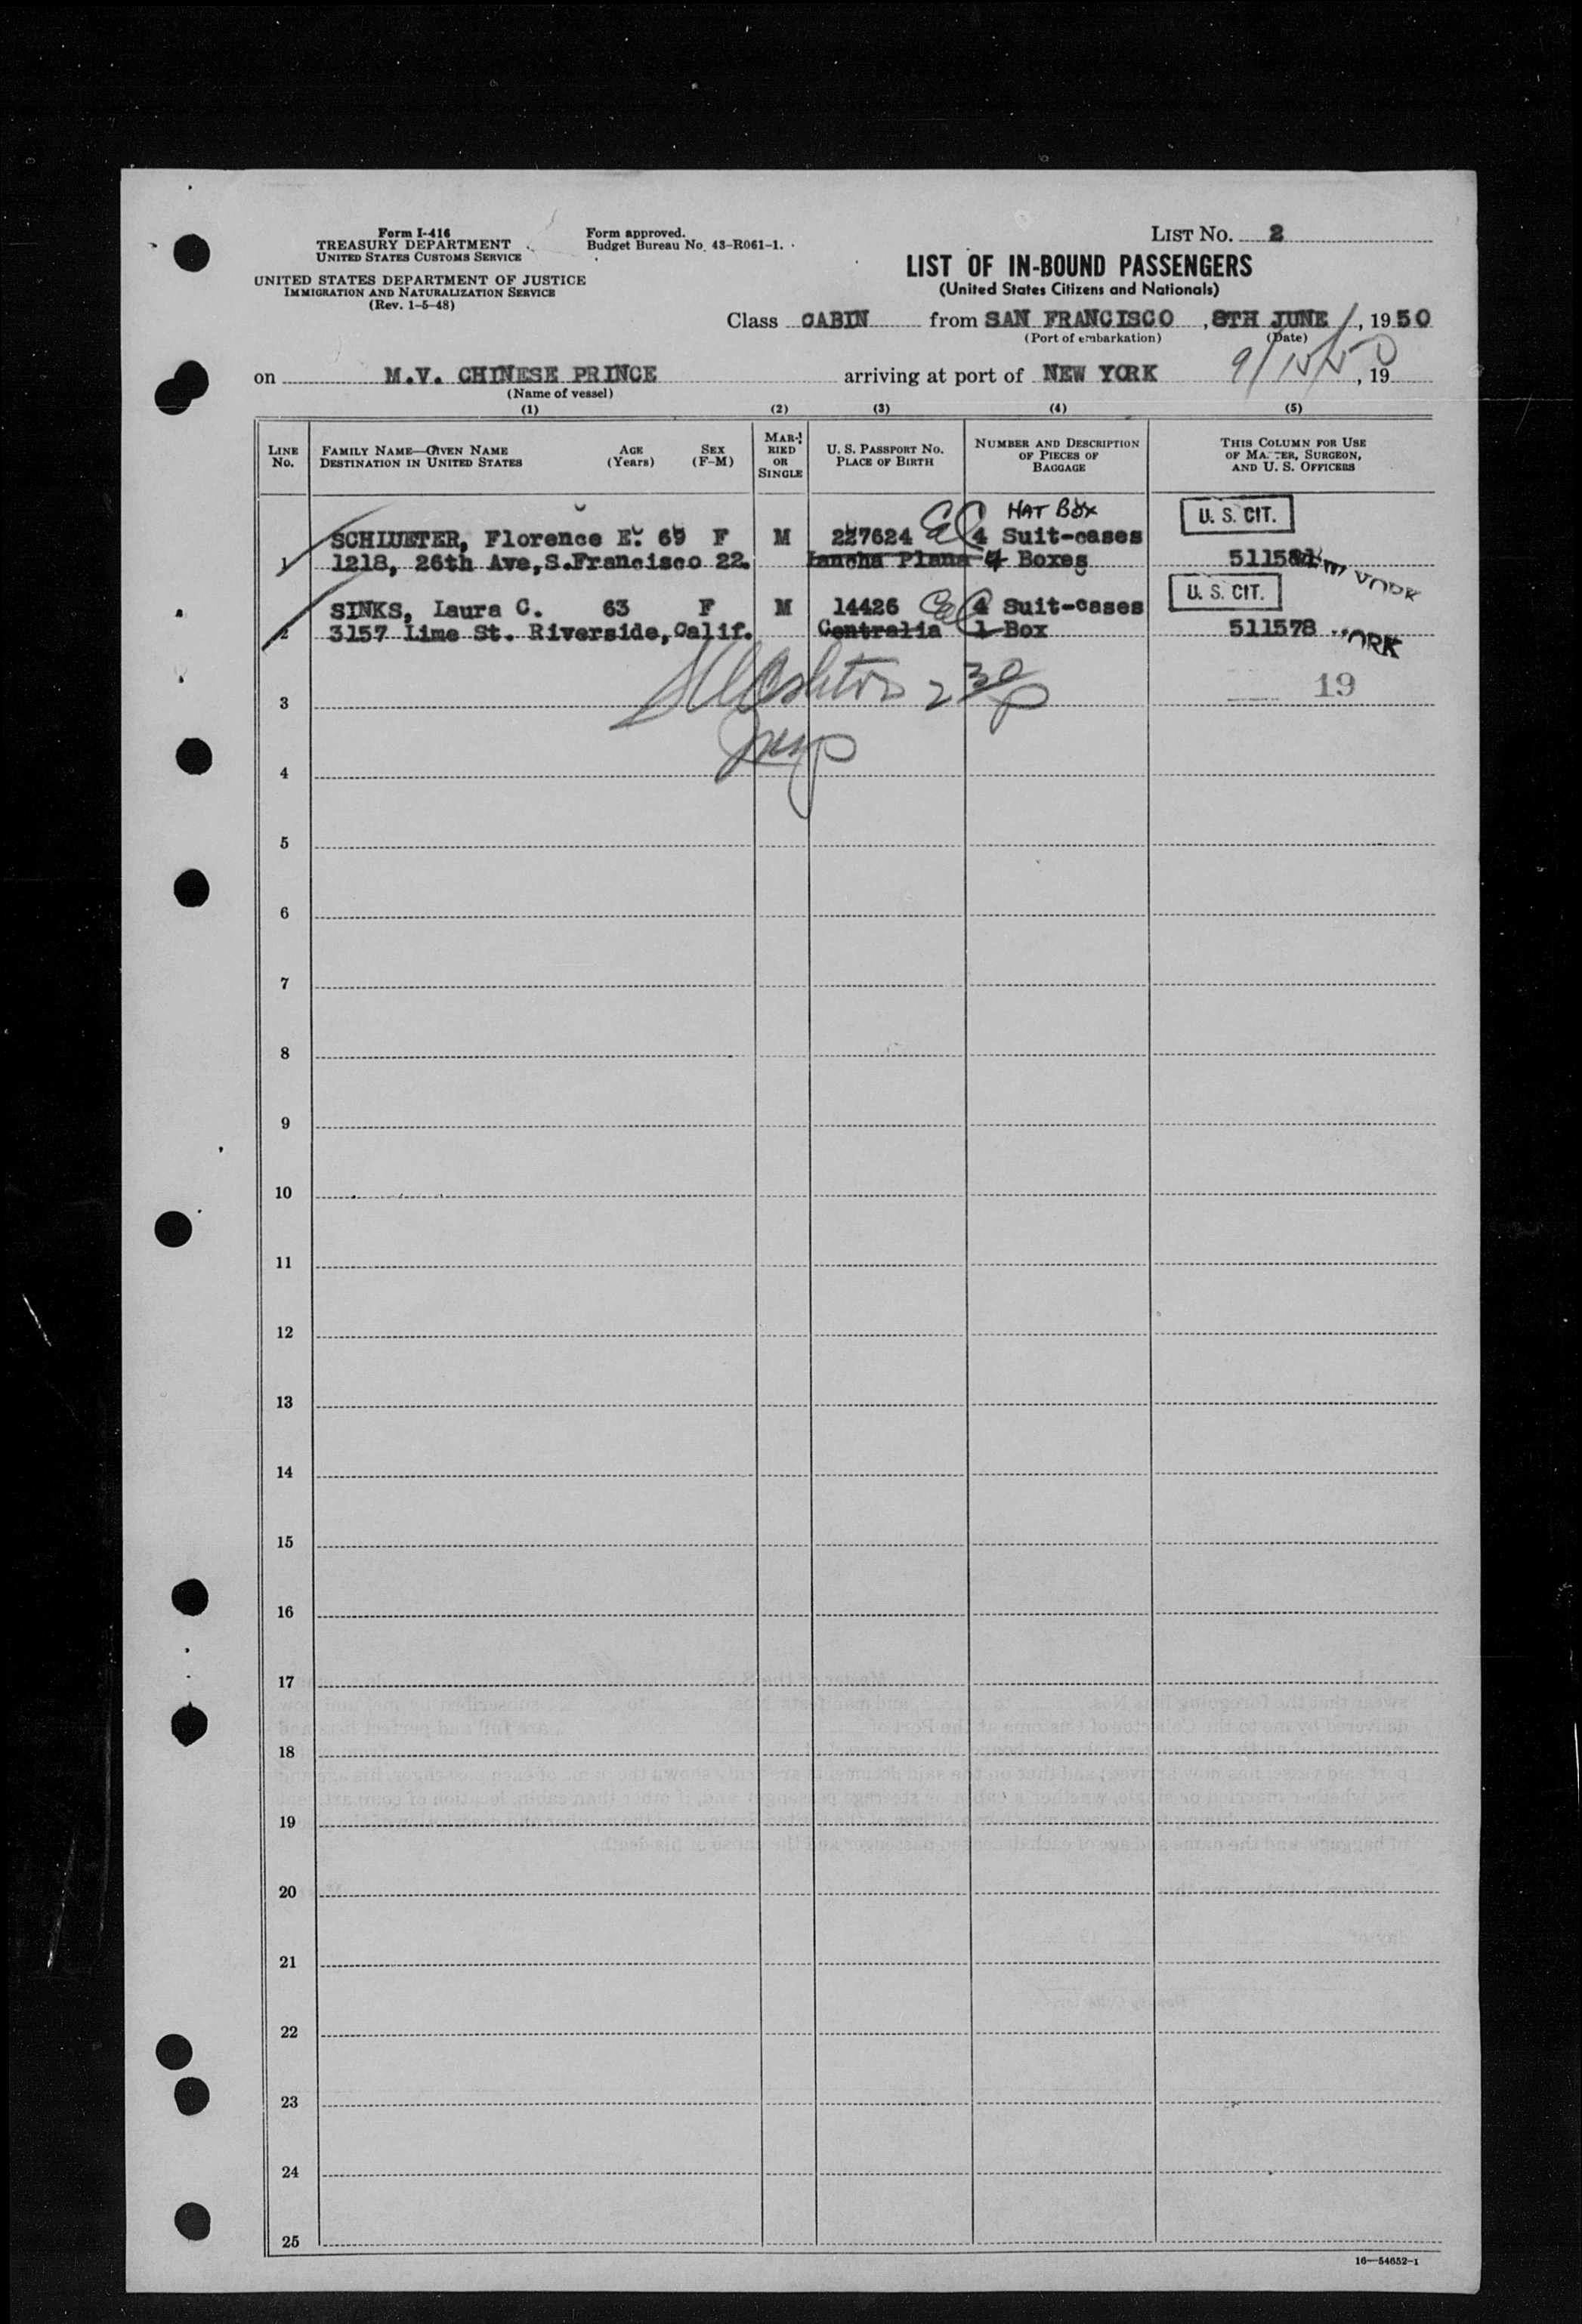 Form I-416
TREASURY DEPARTMENT
UNITED STATES CUSTOMS SERVICE
UNITED STATES DEPARTMENT OF JUSTICE
IMMIGRATION AND NATURALIZATION SERVICE
(Rev. 1-5-48)
Form approved.
Budget Bureau No. 43-R061-1.
LIST NO. 2
LIST OF IN-BOUND PASSENGERS
(United States Citizens and Nationals)
Class CABIN from SAN FRANCISCO, 8TH JUNE, 1950
(Port of embarkation) (Date)
on M.V. CHINESE PRINCE arriving at port of NEW YORK 9/15/50, 19
(Name of vessel)
(1) (2) (3) (4) (5)
LINE No. FAMILY NAME—GIVEN NAME DESTINATION IN UNITED STATES AGE (Years) SEX (F-M) MARRIED OR SINGLE U. S. PASSPORT NO. PLACE OF BIRTH NUMBER AND DESCRIPTION OF PIECES OF BAGGAGE THIS COLUMN FOR USE OF MASTER, SURGEON, AND U. S. OFFICERS
HAT BOX U. S. CIT.
SCHLUETER, Florence E. 69 F M 227624 4 Suit-cases
1 1218, 26th Ave, S.Francisco 22. Lancha Plana 4 Boxes 511581 NEW YORK
U. S. CIT.
SINKS, Laura C. 63 F M 14426 4 Suit-cases
2 3157 Lime St. Riverside, Calif. Centralia 1 Box 511578 YORK
19
3 2 30 p
4
5
6
7
8
9
10
11
12
13
14
15
16
17
18
19
20
21
22
23
24
25
16—54652-1